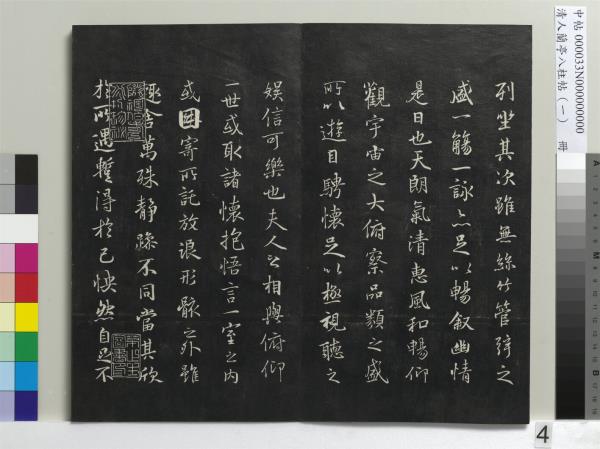 列坐其次雖無絲竹管弦之
盛一觴一詠亦足以暢叙幽情
是日也天朗氣清惠風和暢仰
觀宇宙之大俯察品類之盛
所以遊目騁懷足以極視聽之
娛信可樂也夫人之相與俯仰
一世或取諸懷抱悟言一室之內
或因寄所託放浪形骸之外雖
趣舍萬殊静躁不同當其欣
於所遇暫得於己怏然自足不
中帖 000033N000000000
清人蘭亭八柱帖(一) 冊
4
A
B